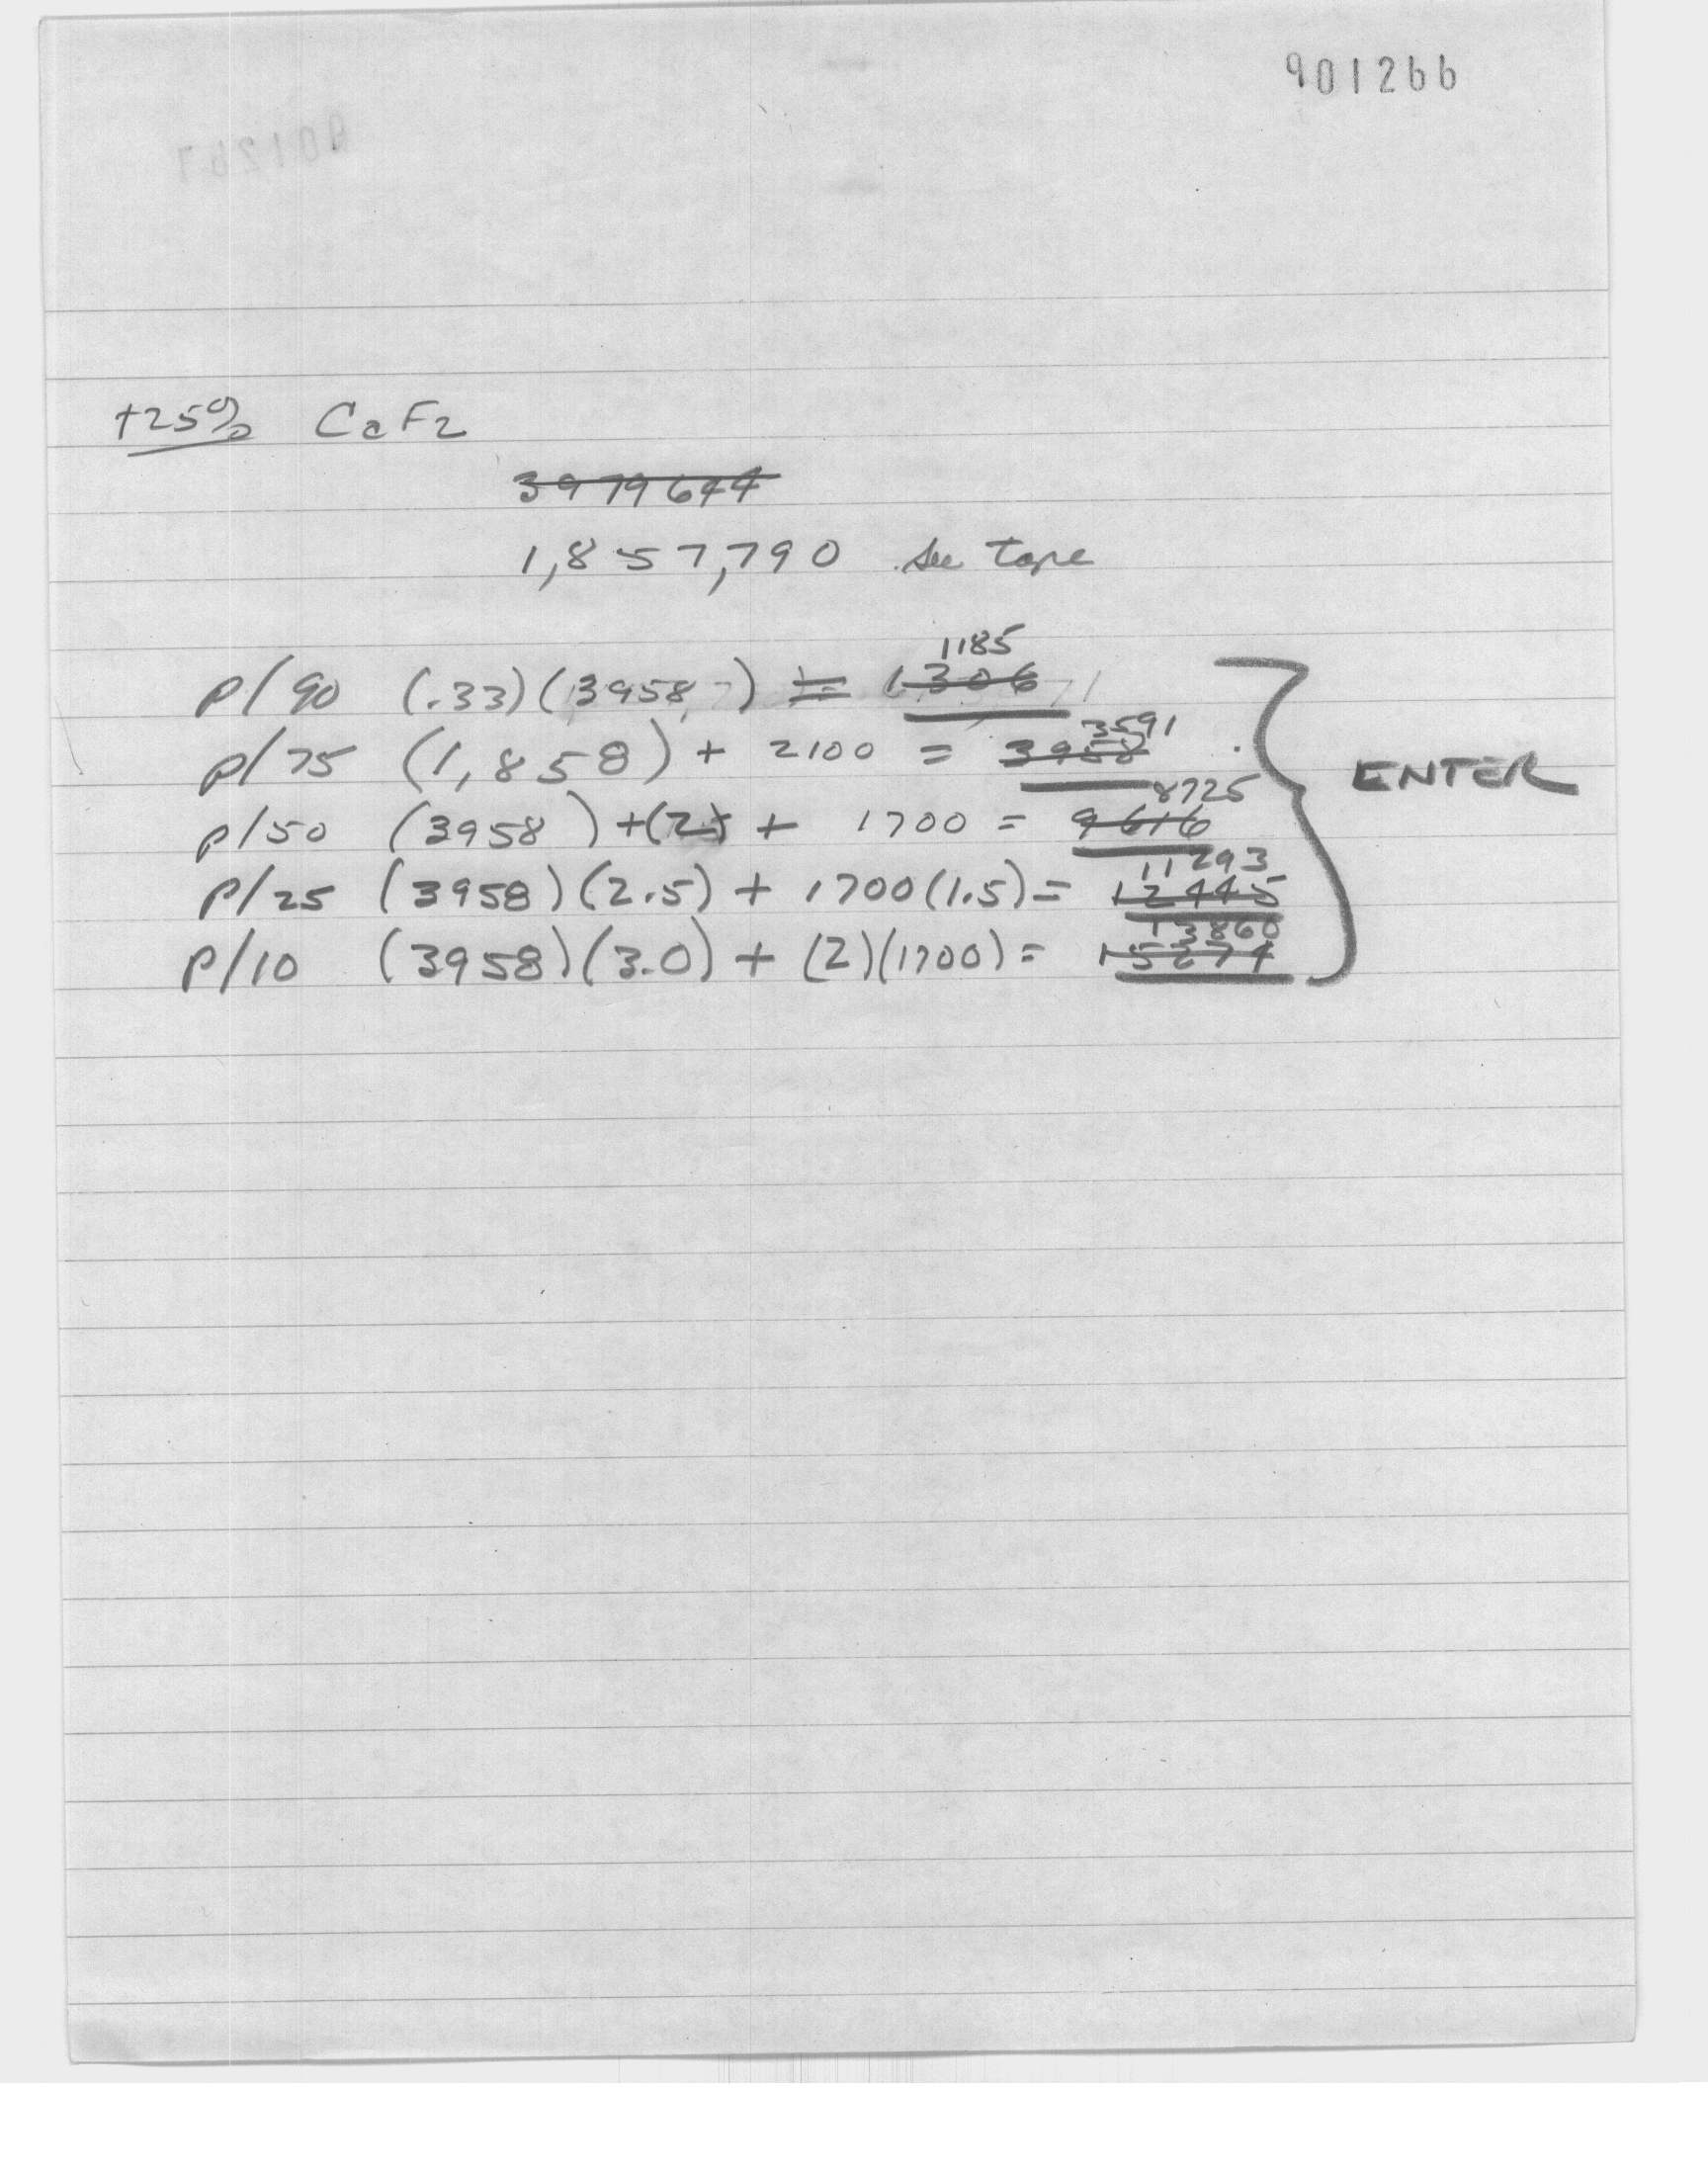 901266
901267
+25% CaF2
3979644
1,857,790 see tape
1185
P/90 (.33)(3958,) = 1306
3591
P/75 (1,858) + 2100 = 3958
8725
P/50 (3958) +(2) + 1700 = 9616
11293
P/25 (3958)(2.5) + 1700(1.5)= 12445
13860
P/10 (3958)(3.0) + (2)(1700)= 15274
ENTER